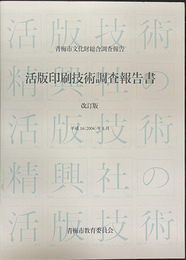 青梅市文化財総合調査報告
活版印刷技術調査報告書
改訂版
平成16(2004)年3月
青梅市教育委員会
活版技術
印刷技術
精興社の
活版技術